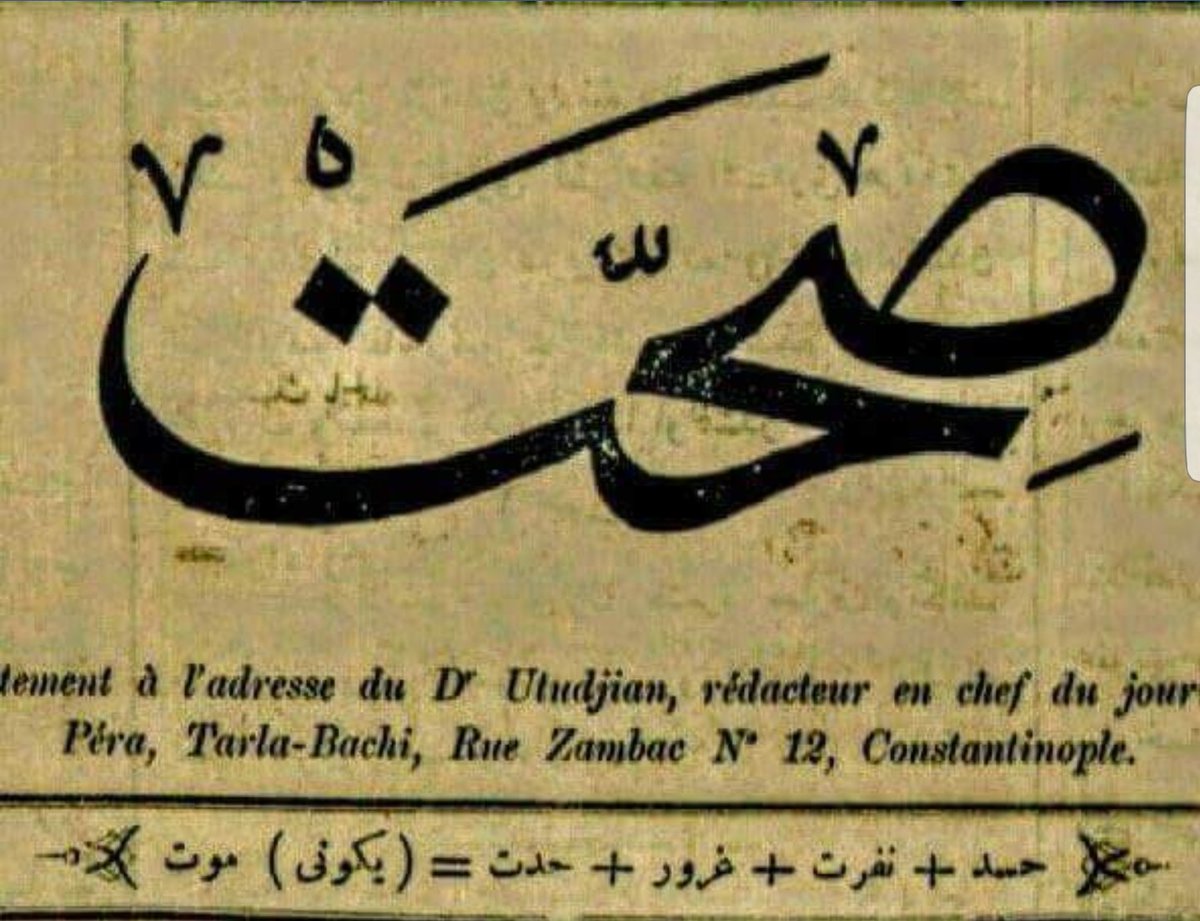 صحّت
tement à l'adresse du Dr Utudjian, rédacteur en chef du jour
Péra, Tarla-Bachi, Rue Zambac No 12, Constantinople.
حسد + نفرت + غرور + حدت = (يكونى) موت